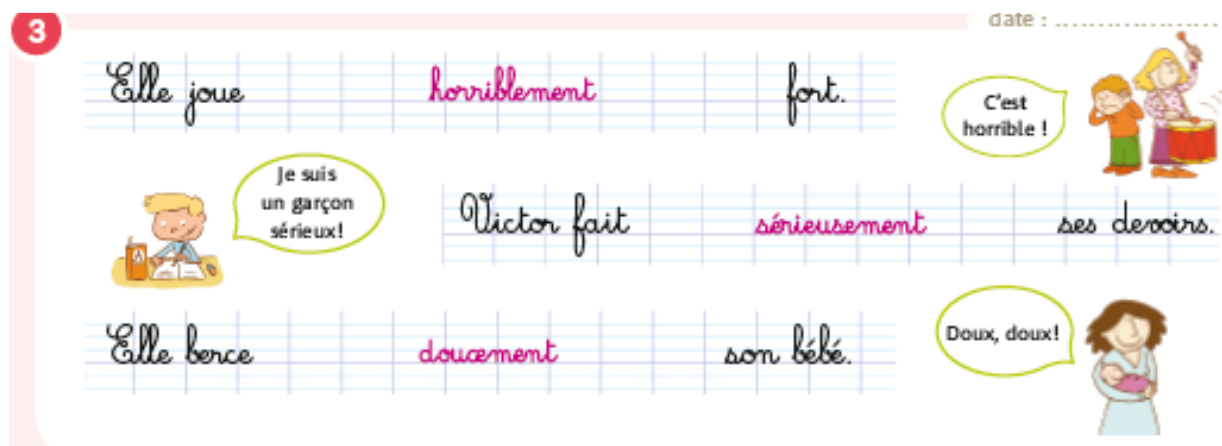 3
date : ....................
Elle joue horriblement fort.
C'est
horrible !
Je suis
un garçon
sérieux!
Victor fait sérieusement ses devoirs.
Elle berce doucement son bébé.
Doux, doux!